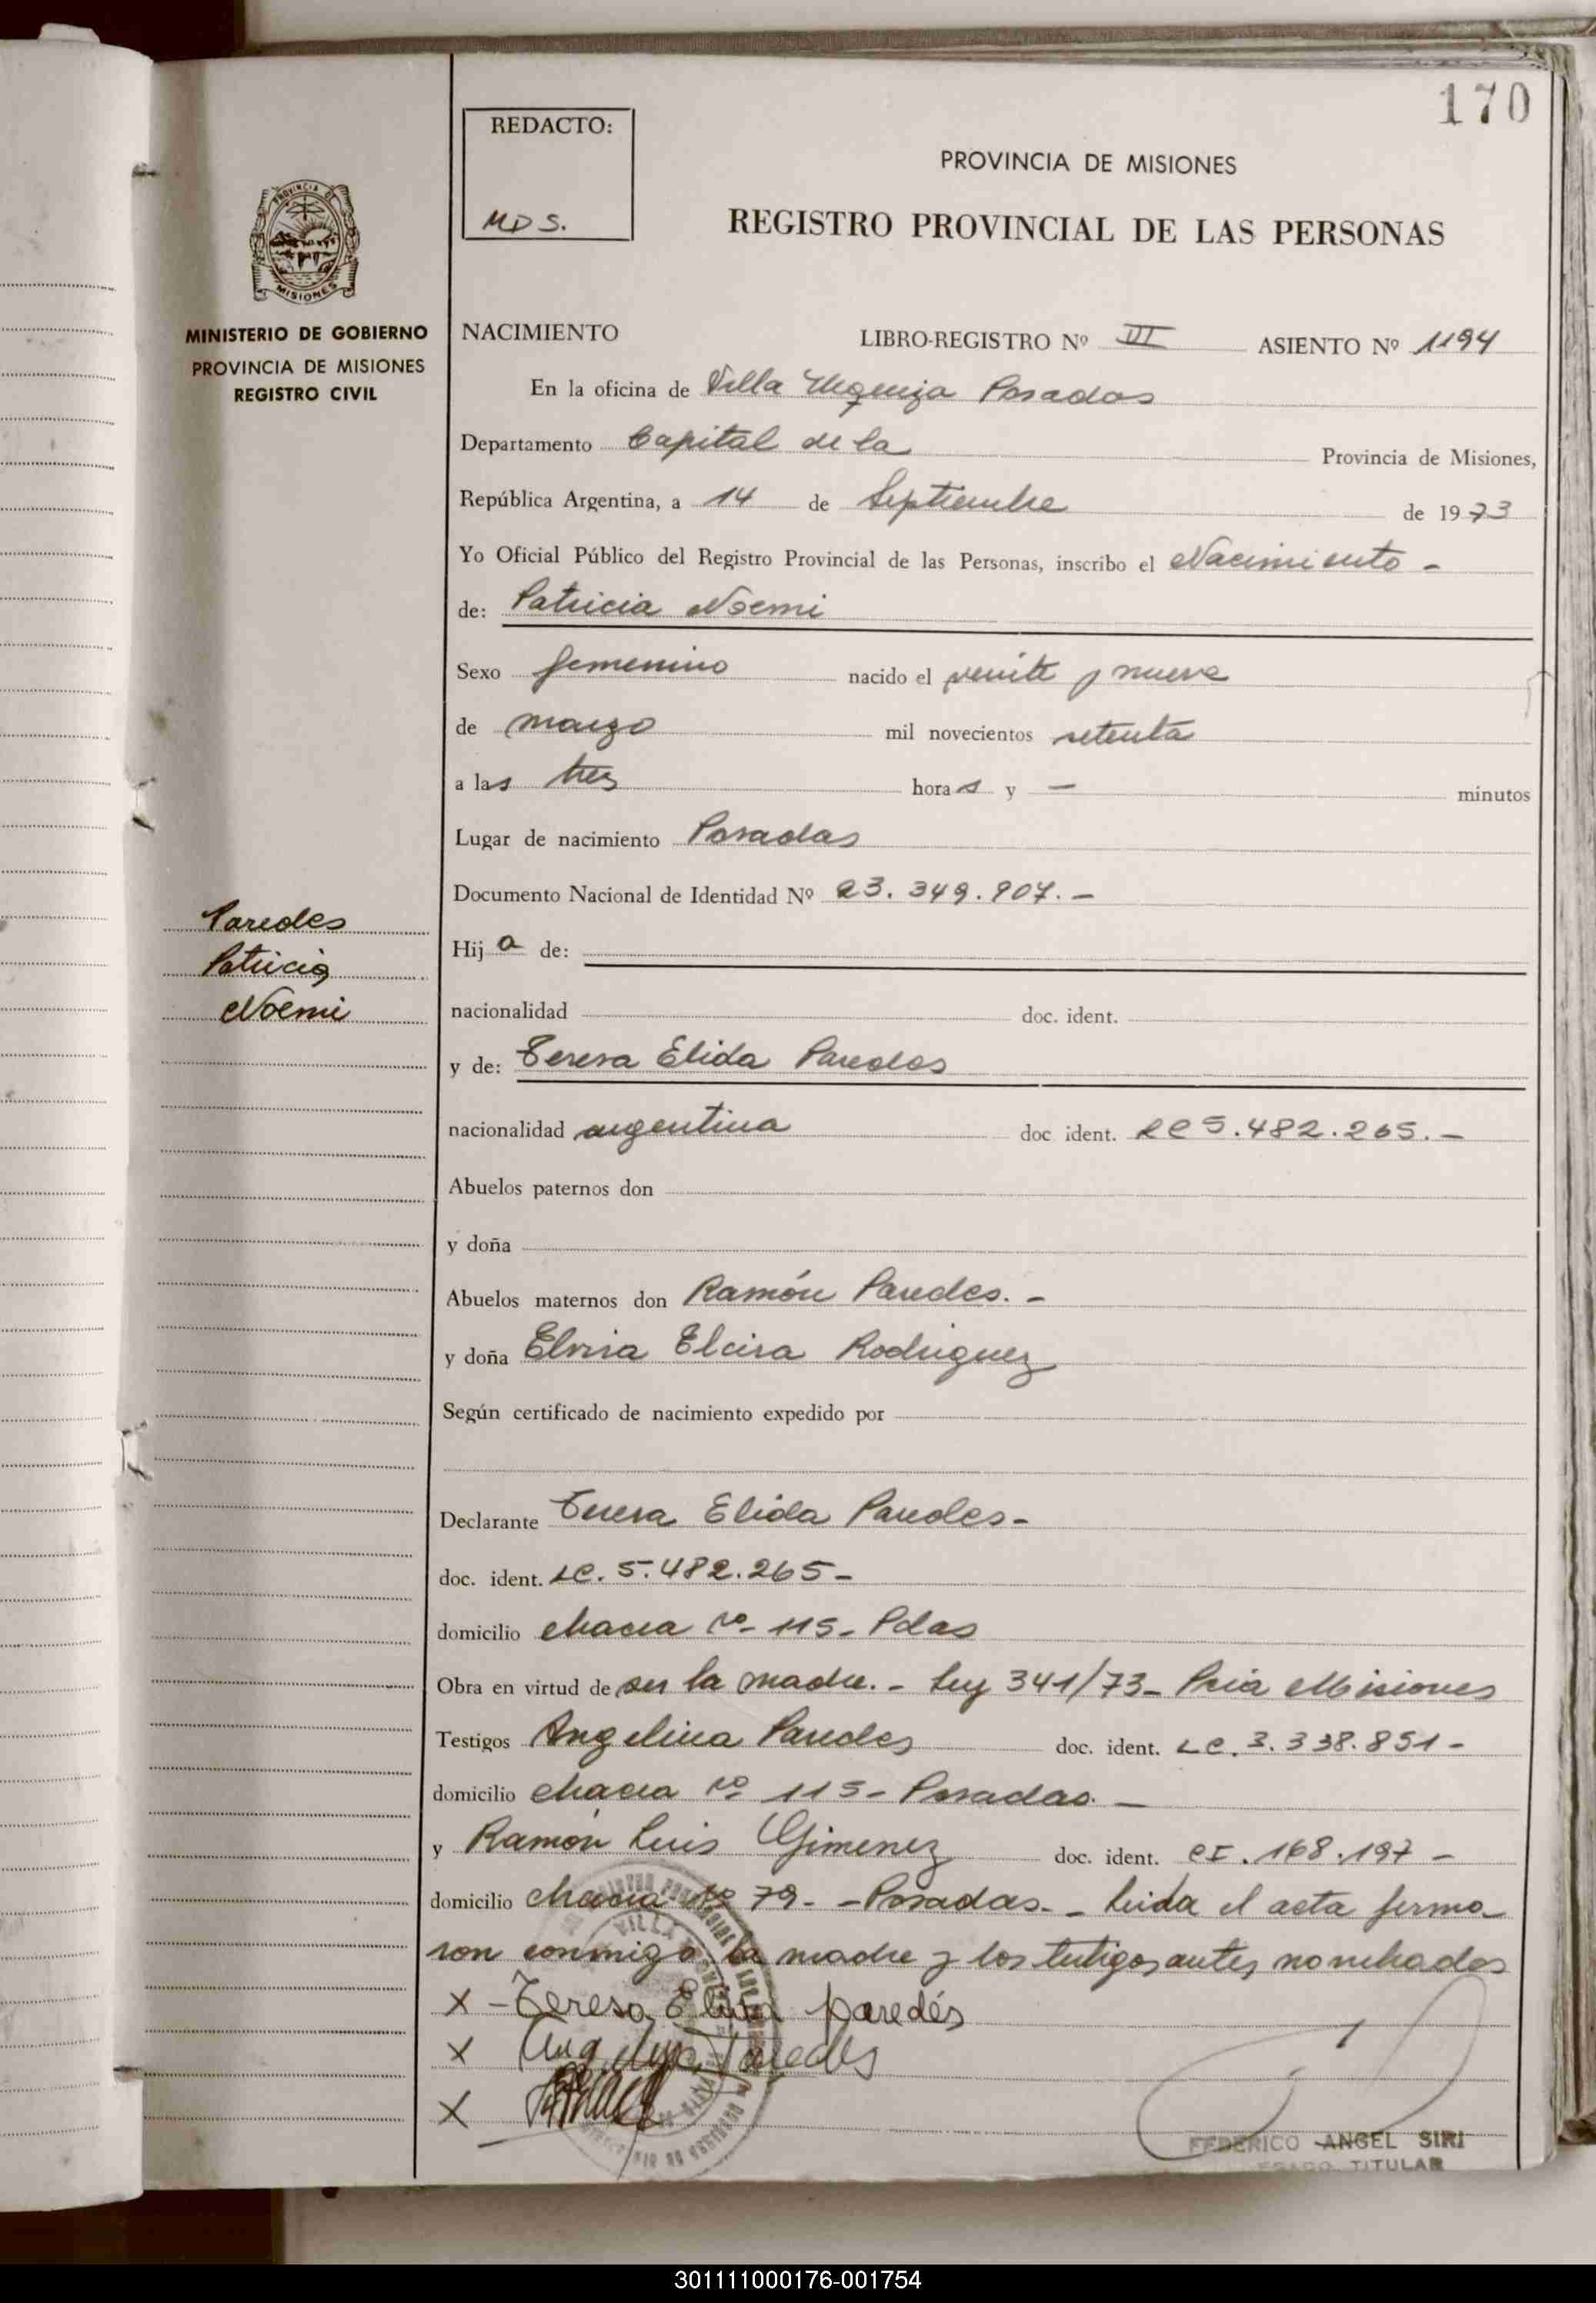 170
REDACTO:
MDS.
PROVINCIA DE MISIONES
REGISTRO PROVINCIAL DE LAS PERSONAS
PROVINCIA DE
MISIONES
MINISTERIO DE GOBIERNO
PROVINCIA DE MISIONES
REGISTRO CIVIL
NACIMIENTO LIBRO-REGISTRO Nº III ASIENTO Nº 1194
En la oficina de Villa Urquiza Posadas
Departamento Capital de la Provincia de Misiones,
República Argentina, a 14 de Septiembre de 1973
Yo Oficial Público del Registro Provincial de las Personas, inscribo el Nacimiento -
de: Patricia Noemi
Sexo femenino nacido el veinte y nueve
de marzo mil novecientos setenta
a las tres horas y — minutos
Lugar de nacimiento Posadas
Documento Nacional de Identidad Nº 23.349.907.-
Paredes
Patricia
Noemi
Hija de:
nacionalidad doc. ident.
y de: Teresa Elida Paredes
nacionalidad argentina doc ident. LC 5.482.265.-
Abuelos paternos don
y doña
Abuelos maternos don Ramón Paredes.-
y doña Elvira Elcira Rodriguez
Según certificado de nacimiento expedido por
Declarante Teresa Elida Paredes-
doc. ident. LC. 5.482.265-
domicilio chacra Nº 115- Pdas
Obra en virtud de ser la madre.- Ley 341/73- Pcia Misiones
Testigos Angelina Paredes doc. ident. LC. 3.338.851-
domicilio chacra Nº 115- Posadas.-
y Ramón Luis Gimenez doc. ident. CI. 168.197-
domicilio chacra Nº 79- -Posadas.- Leida el acta firma-
ron conmigo, la madre y los testigos antes nombrados
X - Teresa Elida paredés
X Angelina Paredes
X
FEDERICO ANGEL SIRI
TITULAR
301111000176-001754